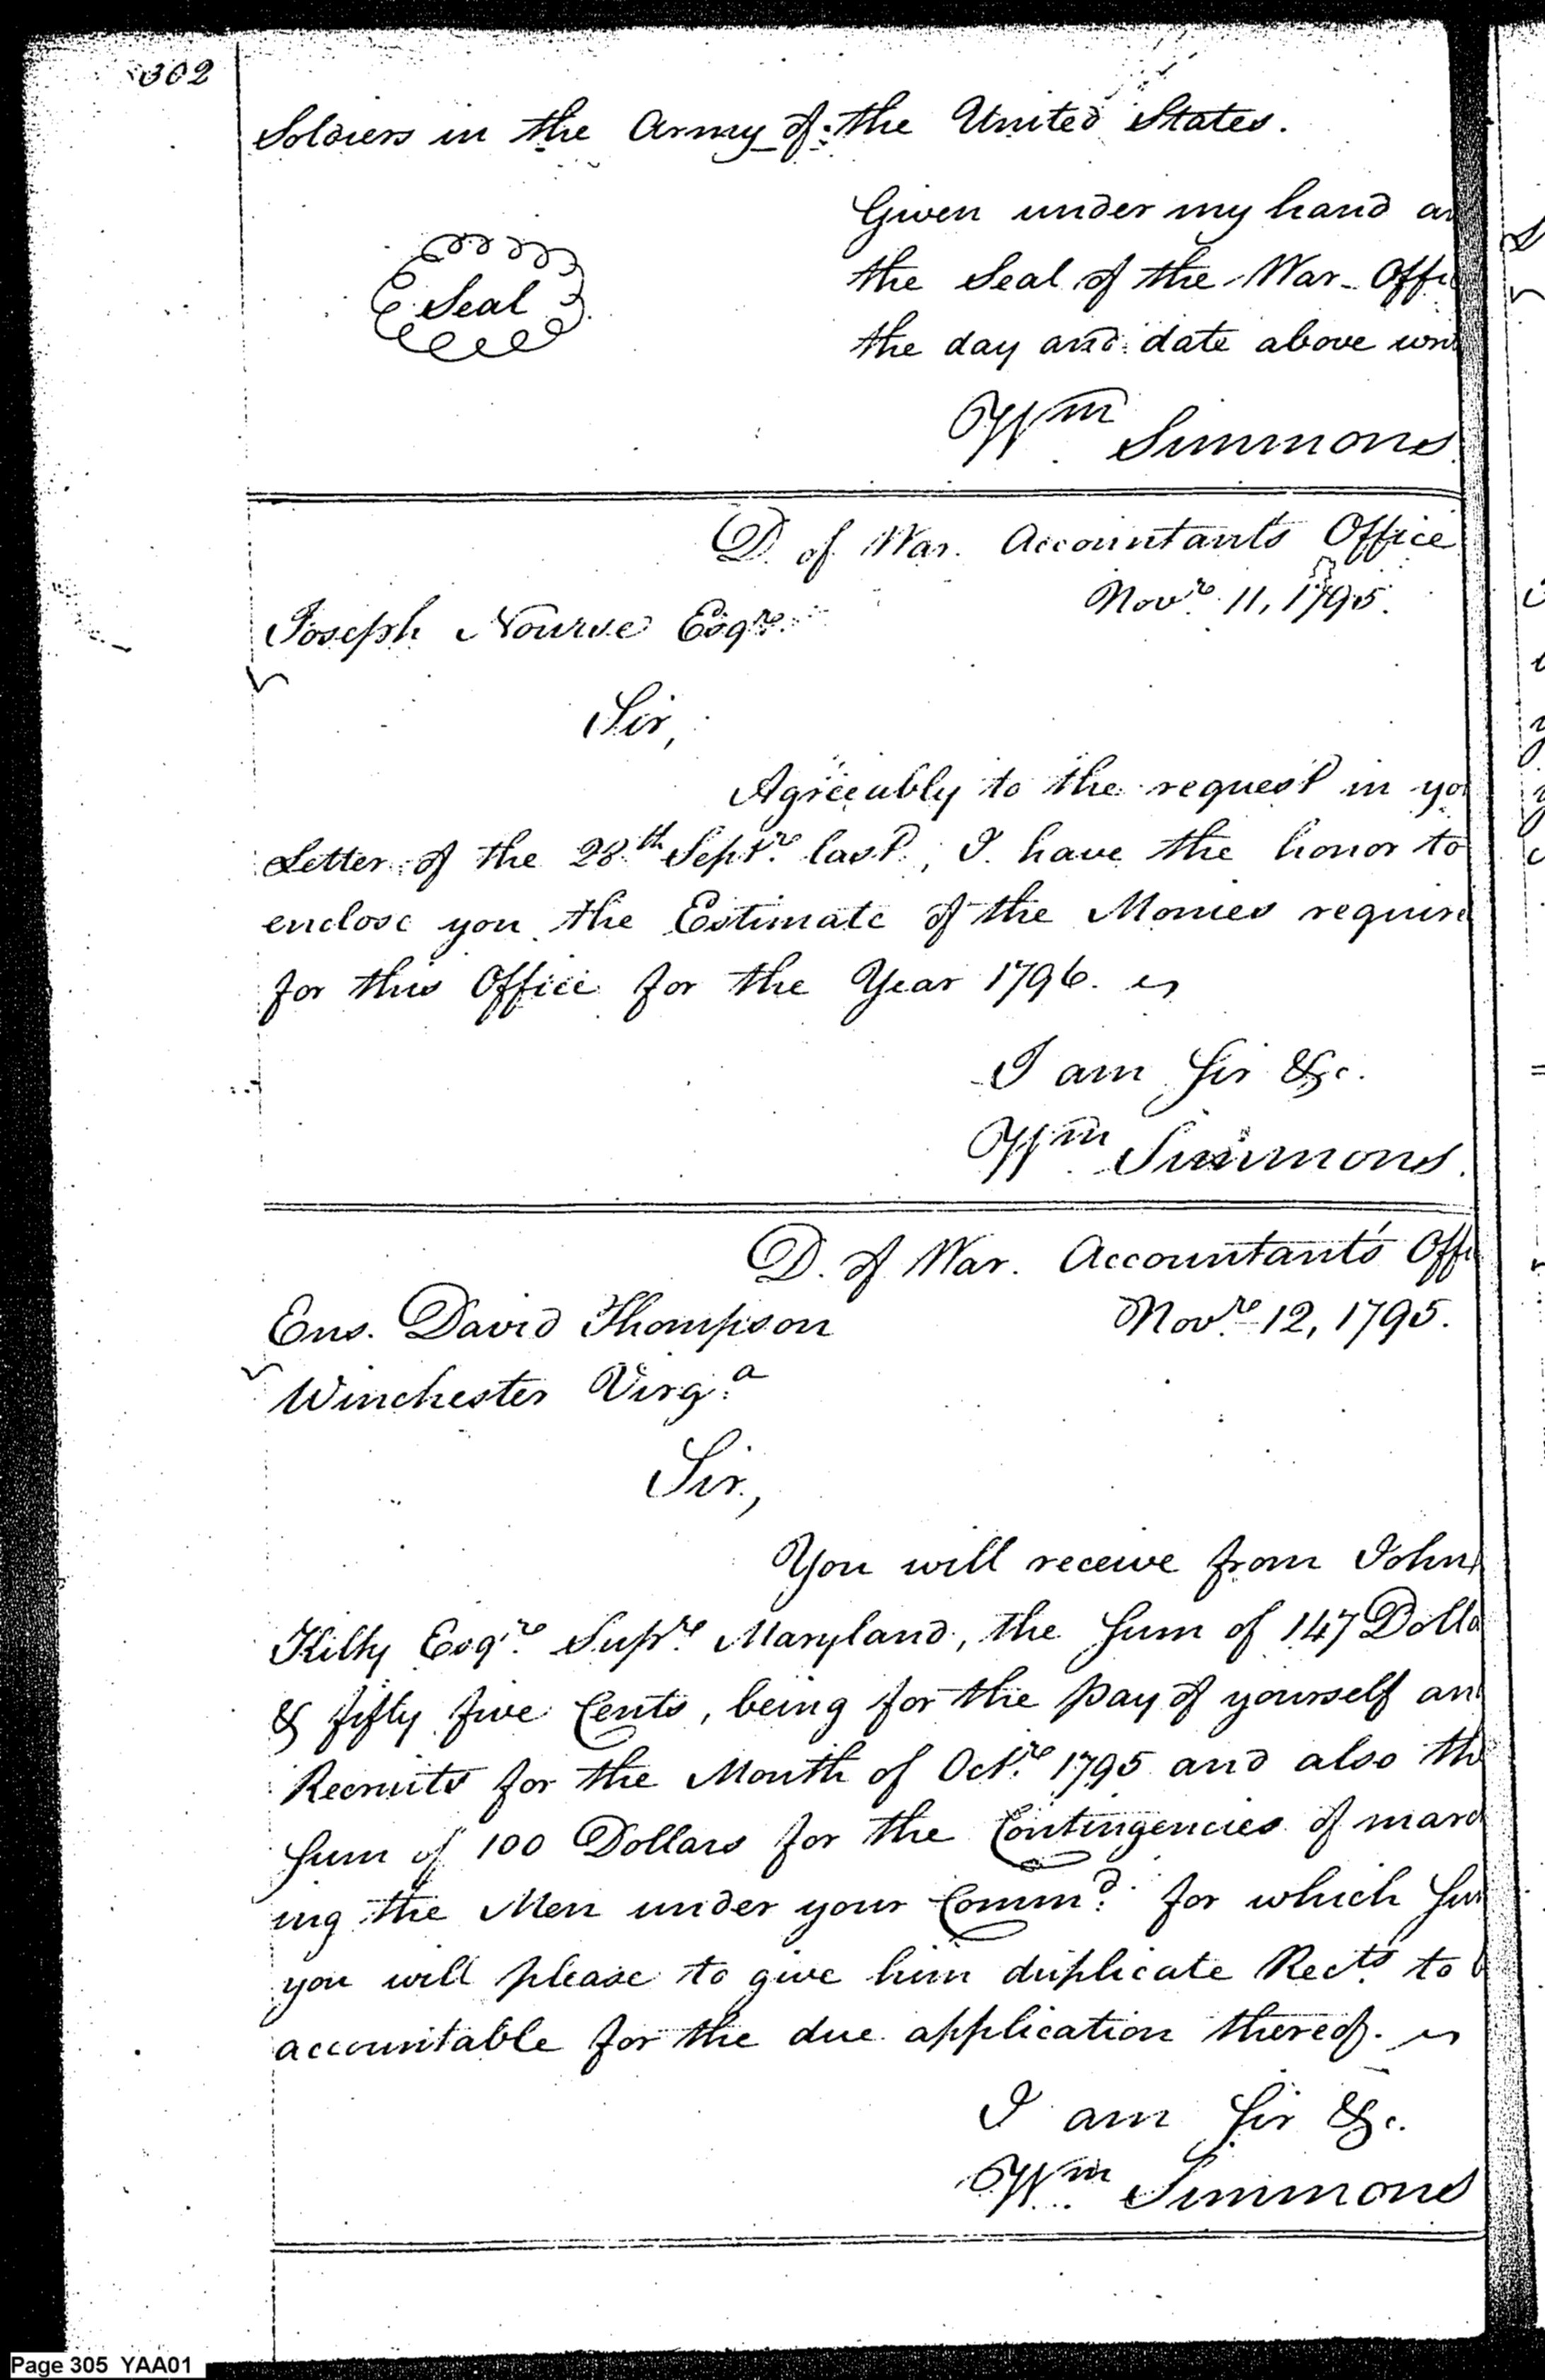 302
Soldiers in the Army of the United States.
Given under my hand an
the Seal of the War-Offi
Seal
the day and date above wri
Wm Simmons
D. of War. Accountant's Office
Novre 11, 1795.
Joseph Nourse Esqre
Sir,
Agreeably to the request in yo
Letter of the 28th Septre last, I have the honor to
enclose you the Estimate of the Monies require
for this Office for the Year 1796.
I am Sir &c.
Wm Simmons.
D. of War. Accountant's Offi
Ens. David Thompson
Novre 12, 1795.
Winchester Virga
Sir,
You will receive from John
Kilty Esqre Supre Maryland, the Sum of 147 Dolla
& fifty five Cents, being for the pay of yourself an
Recruits for the Month of Octre 1795 and also the
Sum of 100 Dollars for the Contingencies of march
ing the Men under your Commd. for which Sum
you will please to give him duplicate Rects to b
accountable for the due application thereof.
I am Sir &c.
Wm Simmons
Page 305 YAA01